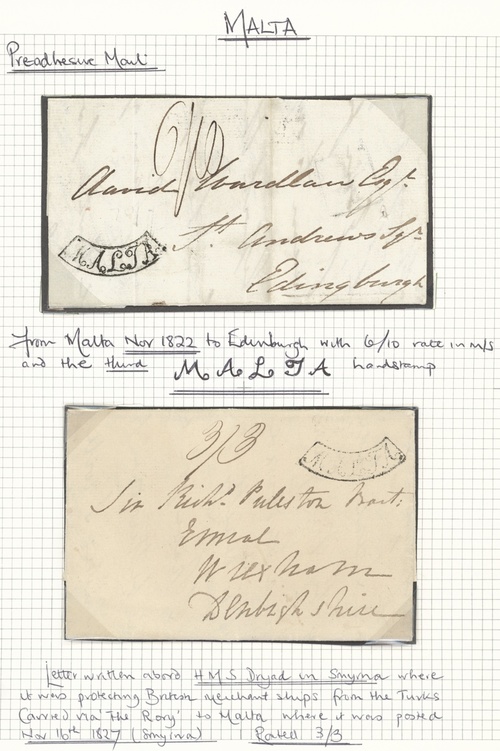 MALTA
Preadhesive Mail
6/10
David Wardlaw Esqr.
St Andrews Sqr
Edingburgh
MALTA
from Malta Nov 1822 to Edinburgh with 6/10 rate in m/s
and the third MALTA handstamp
3/3
MALTA
Sir Richd. Puleston Bart:
Emral
Wrexham
Denbighshire
Letter written abord HMS Dryad in Smyrna where
it was protecting British merchant ships from the Turks
Carried via 'The Rory' to Malta where it was posted
Nov 16th 1827 (Smyrna) Rated 3/3